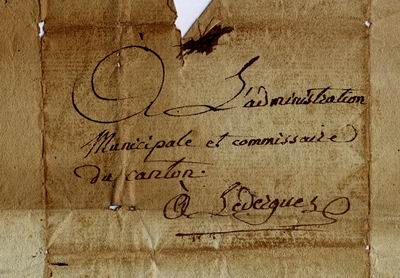 A L'administration
Municipale et commissaire
du canton.
à Ledergues